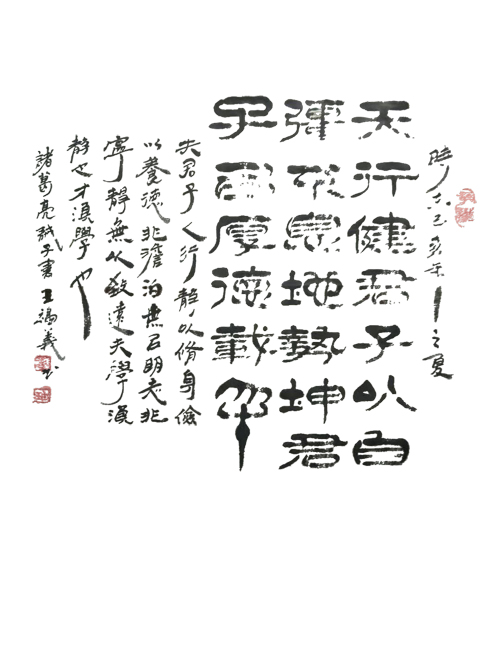 時在己亥年之夏
天行健君子以自
彊不息地勢坤君
子而厚德載物
夫君子之行静以脩身儉
以養德非澹泊無以明志非
寧靜無以致遠夫學須
静也才須學也
諸葛亮誡子書 王福義書